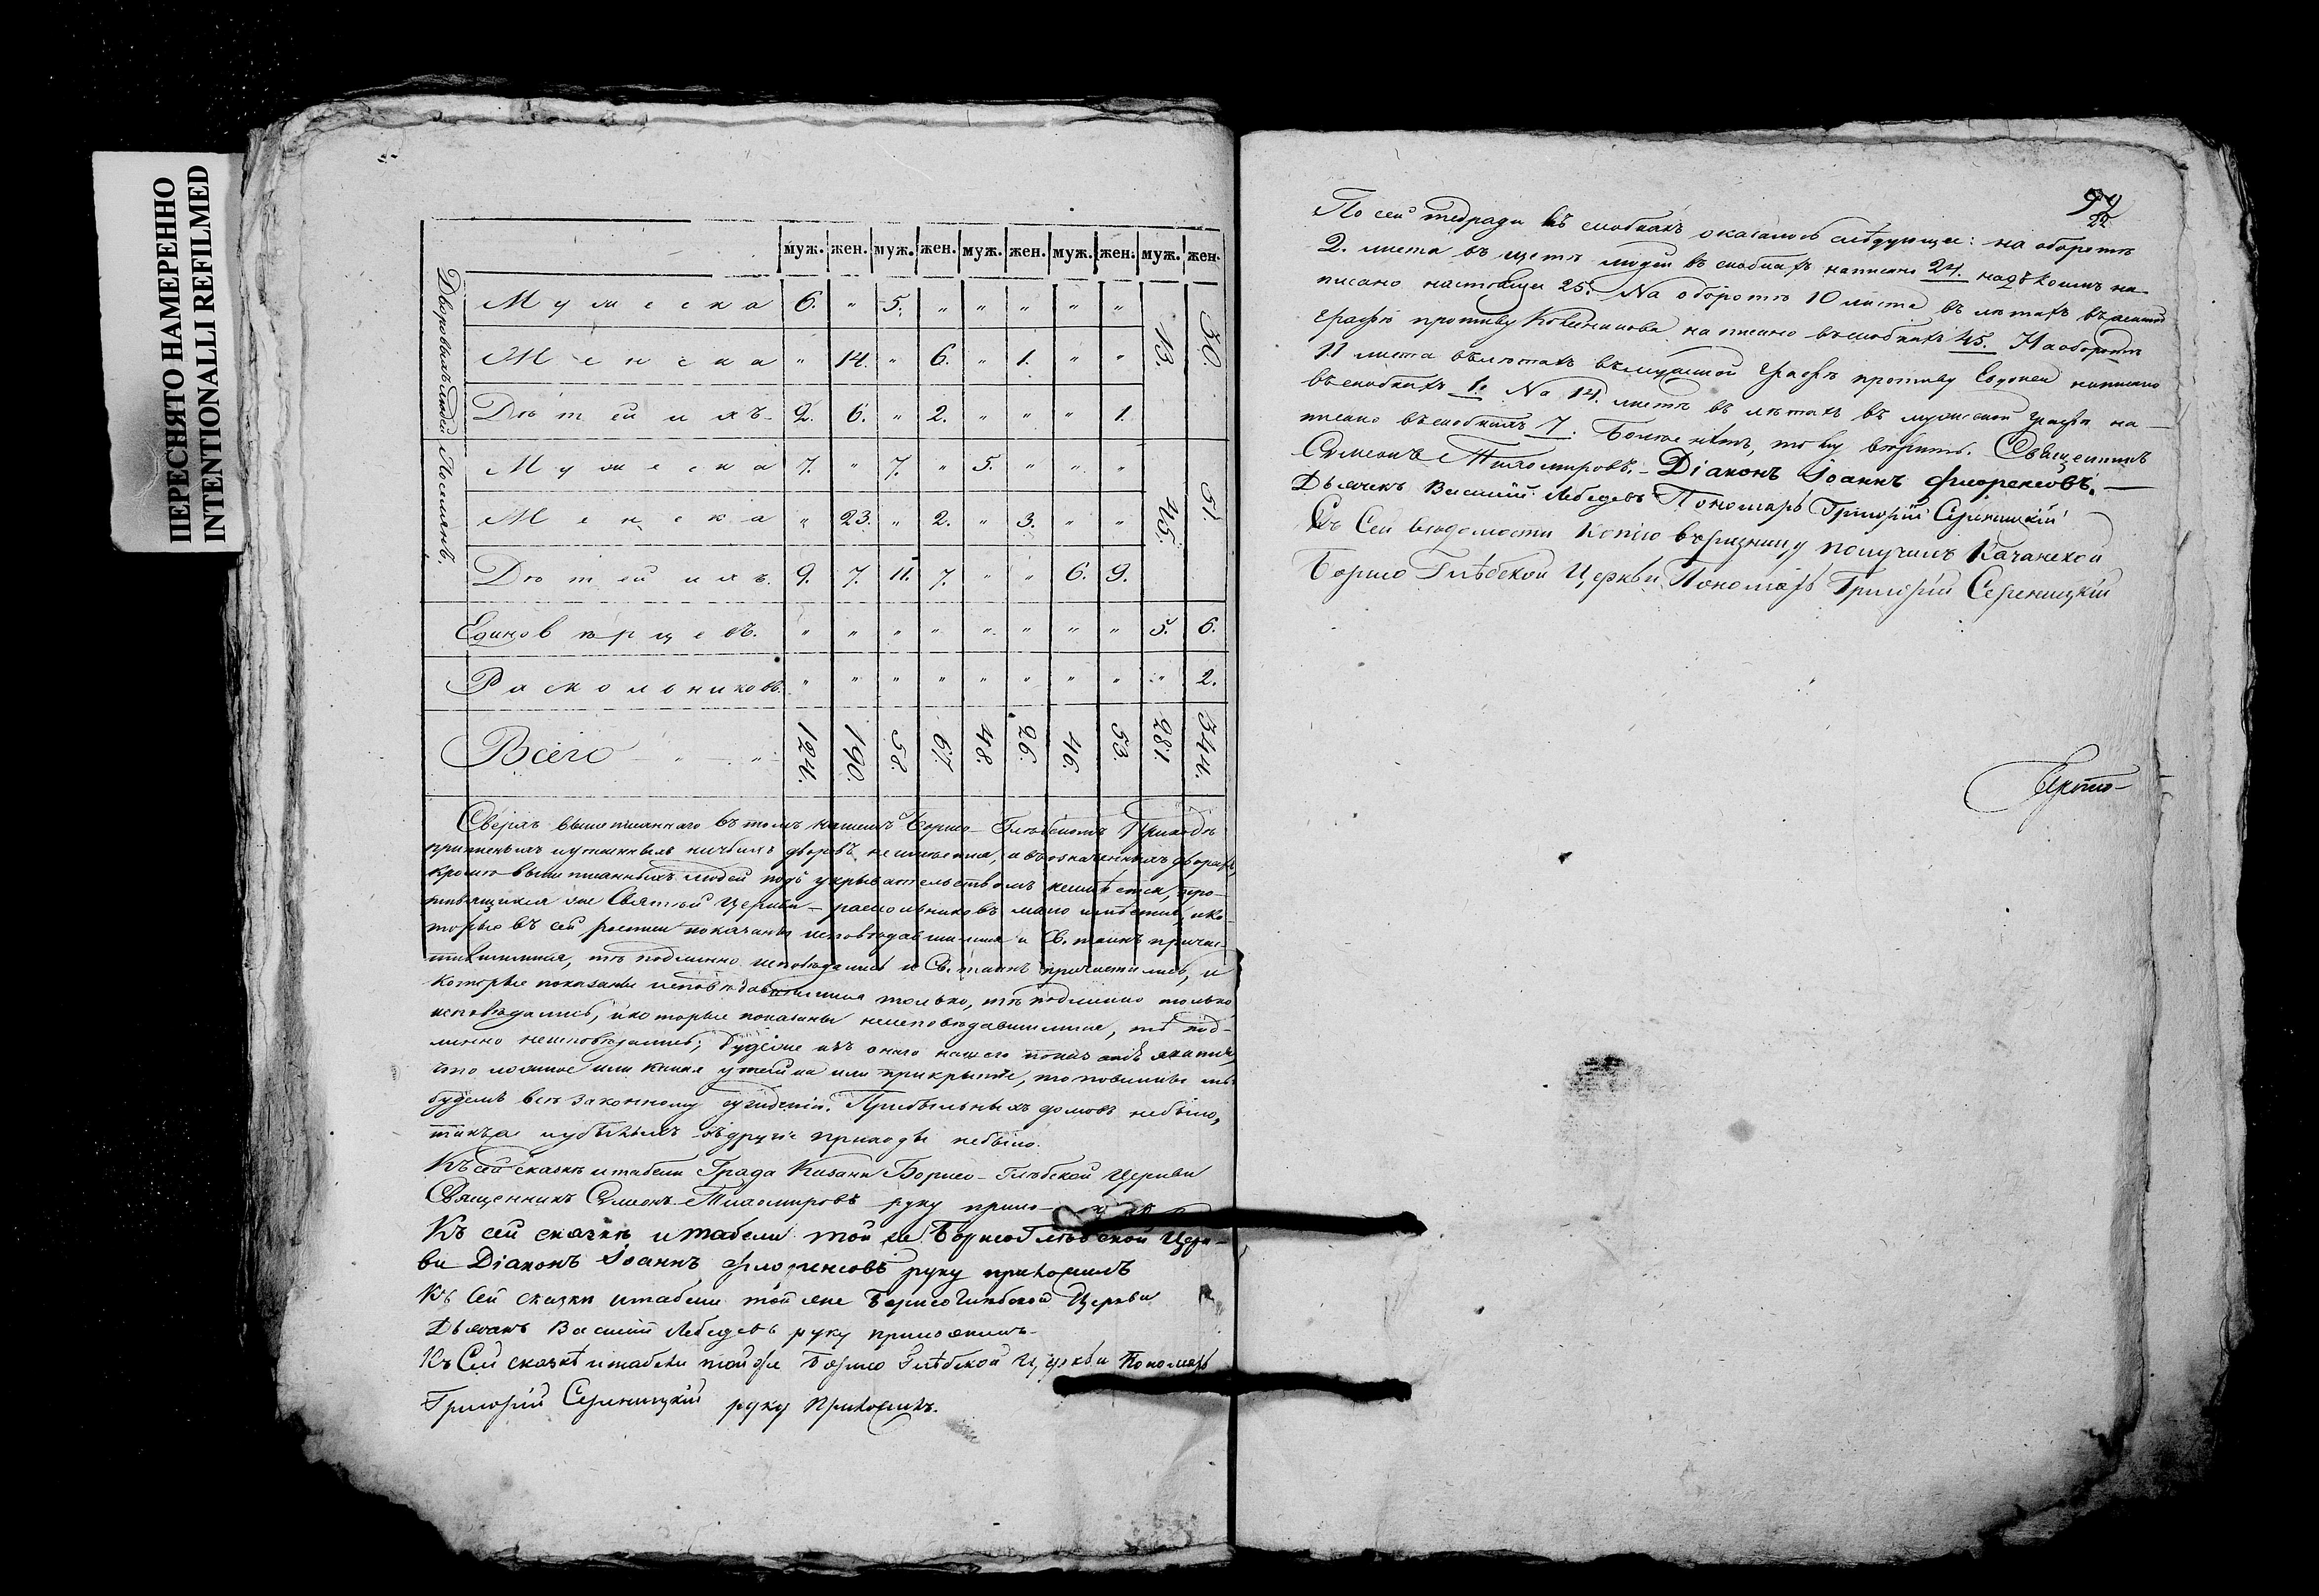 ПЕРЕСНЯТО НАМЕРЕННО
INTENTIONALLI REFILMED
муж. жен. муж. жен. муж. жен. муж. жен. муж. жен.
Дворовыхъ людей
Мужеска 6. " 5. " " " " " 13. 30.
Женска " 14. " 6. " 1. " "
Дѣтей ихъ 2. 6. " 2. " " " 1.
Поселянъ.
Мужеска 7. " 7. " 5. " " " 45. 51.
Женска " 23. " 2. " 3. " "
Дѣтей ихъ. 9. 7. 11. 7. " " 6. 9.
Единовѣрцевъ. " " " " " " " " 5. 6.
Раскольниковъ. " " " " " " " " " 2.
Всего 124. 190. 58. 67. 48. 26. 46. 53. 281. 344.
Сверхъ вышеписаннаго въ томъ нашемъ Борисо-Глѣбскомъ Приходѣ
дворовъ не имѣется, а въ означенныхъ дворахъ,
кромѣ вышеписанныхъ людей подъ укрывательствомъ не имѣется, про-
тивящихся же Святой Церкви раскольниковъ ко-
торые въ сей росписи показаны исповѣдавшимися и Св. таинъ причас-
тившимися, тѣ подлинно исповѣдались и Св. таинъ причастились, и
которые показаны исповѣдавшимися только, тѣ подлинно только
исповѣдались, и которые показаны неисповѣдавшимися, тѣ под-
линно неисповѣдались; будеже изъ онаго нашего
что ложное или какая утайка или прикрытіе, то повинны мы
будемъ всѣ законному сужденію. Прибыльныхъ домовъ небыло,
также и убылыхъ въ другіе приходы небыло.
Къ сей сказкѣ и табели Града Казани Борисо-Глѣбской Церкви
Священникъ Симеонъ Тихомировъ руку прило-
Къ сей сказкѣ и табели той же Борисоглѣбской Церк-
ви Діаконъ Іоаннъ Флоренсовъ руку приложилъ
Къ сей сказки и табели той же Борисоглѣбской Церкви
Дьячекъ Василій Лебедевъ руку приложилъ
Къ Сей сказкѣ и табели той же Борисо Глѣбской Церкви Пономарь
Григорій Сереницкій руку приложилъ.
22
По сей тетради въ скобкахъ оказалось слѣдующее: на оборотѣ
2. листа въ щетѣ людей въ скобкахъ написано 24. надъ коимъ на-
писано настоящее 25. На оборотѣ 10 листа въ лѣтахъ въ женской
графѣ противу написано въ скобкахъ 45. На оборотѣ
11 листа въ лѣтахъ въ мужской графѣ противу Евдокеи написано
въ скобкахъ 1. На 14. листѣ въ лѣтахъ въ мужеской графѣ на-
писано въ скобкахъ 7. Болѣе нѣтъ, тому вѣрить. Священникъ
Симеонъ Тихомировъ. - Діаконъ Іоаннъ Флоренсовъ. -
Дьячекъ Василій Лебедевъ Пономарь Григорій Сереницкій
Съ Сей вѣдомости копію въ ризницу получилъ Казанской
Борисо Глѣбской Церкви Пономарь Григорій Сереницкій